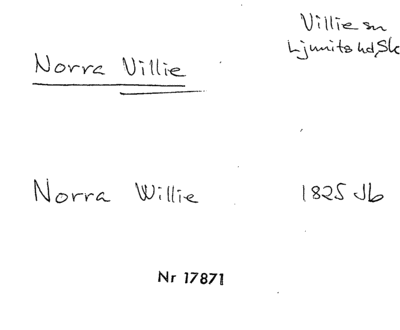 Norra Villie
Villie sn
Ljunits hd, Sk
Norra Willie
1825 Jb
Nr 17871